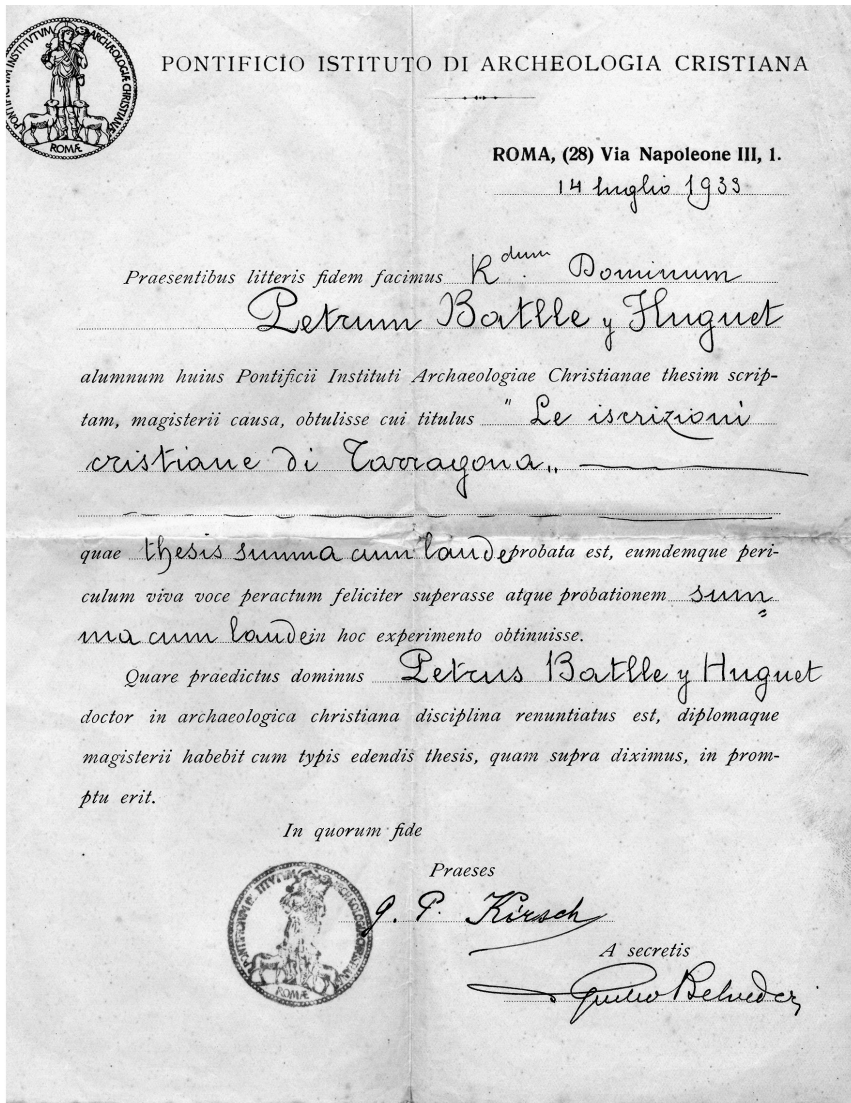 PONTIFICIUM INSTITUTUM ARCHÆOLOGIÆ CHRISTIANÆ
ROMÆ
PONTIFICIO ISTITUTO DI ARCHEOLOGIA CRISTIANA
ROMA, (28) Via Napoleone III, 1.
14 luglio 1933
Praesentibus litteris fidem facimus R.dum Dominum
Petrum Batlle y Huguet
alumnum huius Pontificii Instituti Archaeologiae Christianae thesim scrip-
tam, magisterii causa, obtulisse cui titulus " Le iscrizioni
cristiane di Tarragona„
quae thesis summa cum laude probata est, eumdemque peri-
culum viva voce peractum feliciter superasse atque probationem sum=
ma cum laude in hoc experimento obtinuisse.
Quare praedictus dominus Petrus Batlle y Huguet
doctor in archaeologica christiana disciplina renuntiatus est, diplomaque
magisterii habebit cum typis edendis thesis, quam supra diximus, in prom-
ptu erit.
In quorum fide
Praeses
J. P. Kirsch
A secretis
Giulio Belvederi
ROMÆ